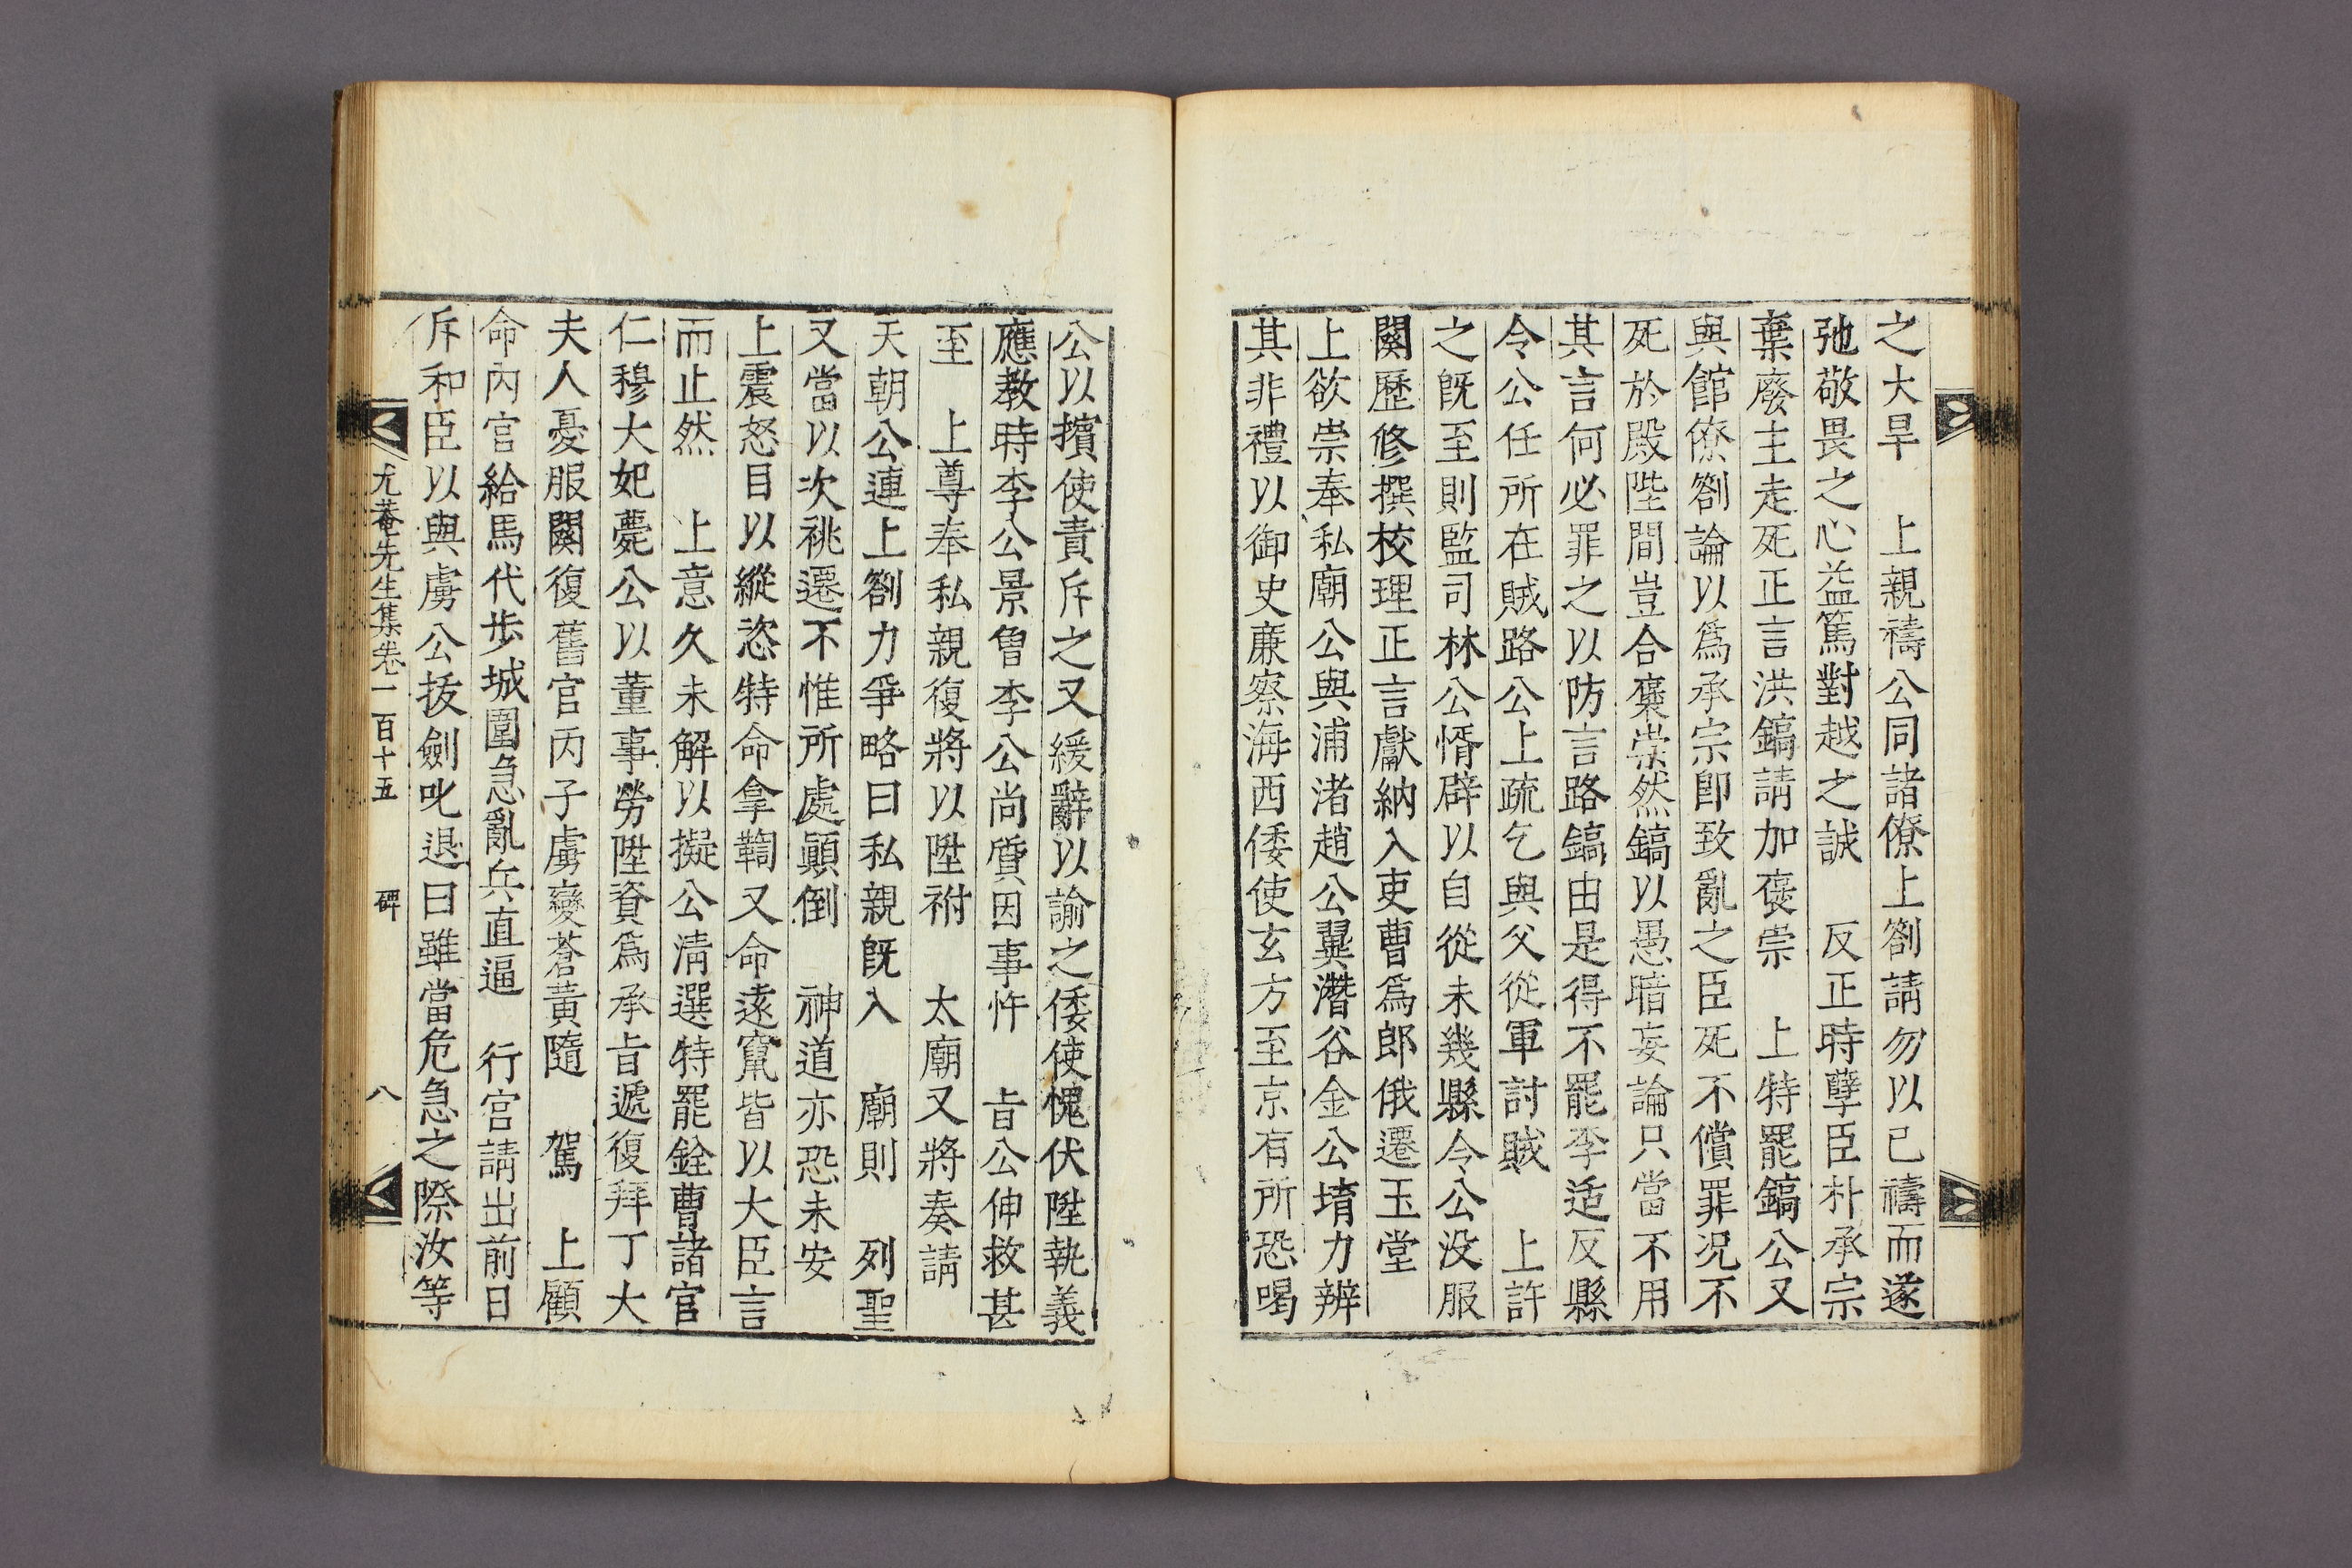 之大旱　上親禱公同諸僚上劄請勿以已禱而遂
弛敬畏之心益篤對越之誠　反正時孽臣朴承宗
棄廢主走死正言洪鎬請加褒崇　上特罷鎬公又
與館僚劄論以爲承宗卽致亂之臣死不償罪况不
死於殿陛間豈合褒崇然鎬以愚暗妄論只當不用
其言何必罪之以防言路鎬由是得不罷李适反縣
令公任所在賊路公上疏乞與父從軍討賊　上許
之旣至則監司林公惰辟以自從未幾縣令公没服
闋歷修撰校理正言獻納入吏曹爲郎俄遷玉堂
上欲崇奉私廟公與浦渚趙公翼潛谷金公堉力辨
其非禮以御史廉察海西倭使玄方至京有所恐喝
公以擯使責斥之又緩辭以諭之倭使愧伏陞執義
應教時李公景曾李公尚質因事忤　旨公伸救甚
至　上尊奉私親復將以陞祔　太廟又將奏請
天朝公連上劄力爭略曰私親旣入　廟則　列聖
又當以次祧遷不惟所處顚倒　神道亦恐未安
上震怒目以縱恣特命拿鞫又命遠竄皆以大臣言
而止然　上意久未解以擬公清選特罷銓曹諸官
仁穆大妃薨公以董事勞陞資爲承旨遞復拜丁大
夫人憂服闋復舊官丙子虜變蒼黃隨　駕　上顧
命內官給馬代步城圍急亂兵直逼　行宮請出前日
斥和臣以與虜公拔劍叱退曰雖當危急之際汝等
尤菴先生集卷一百十五　碑　八